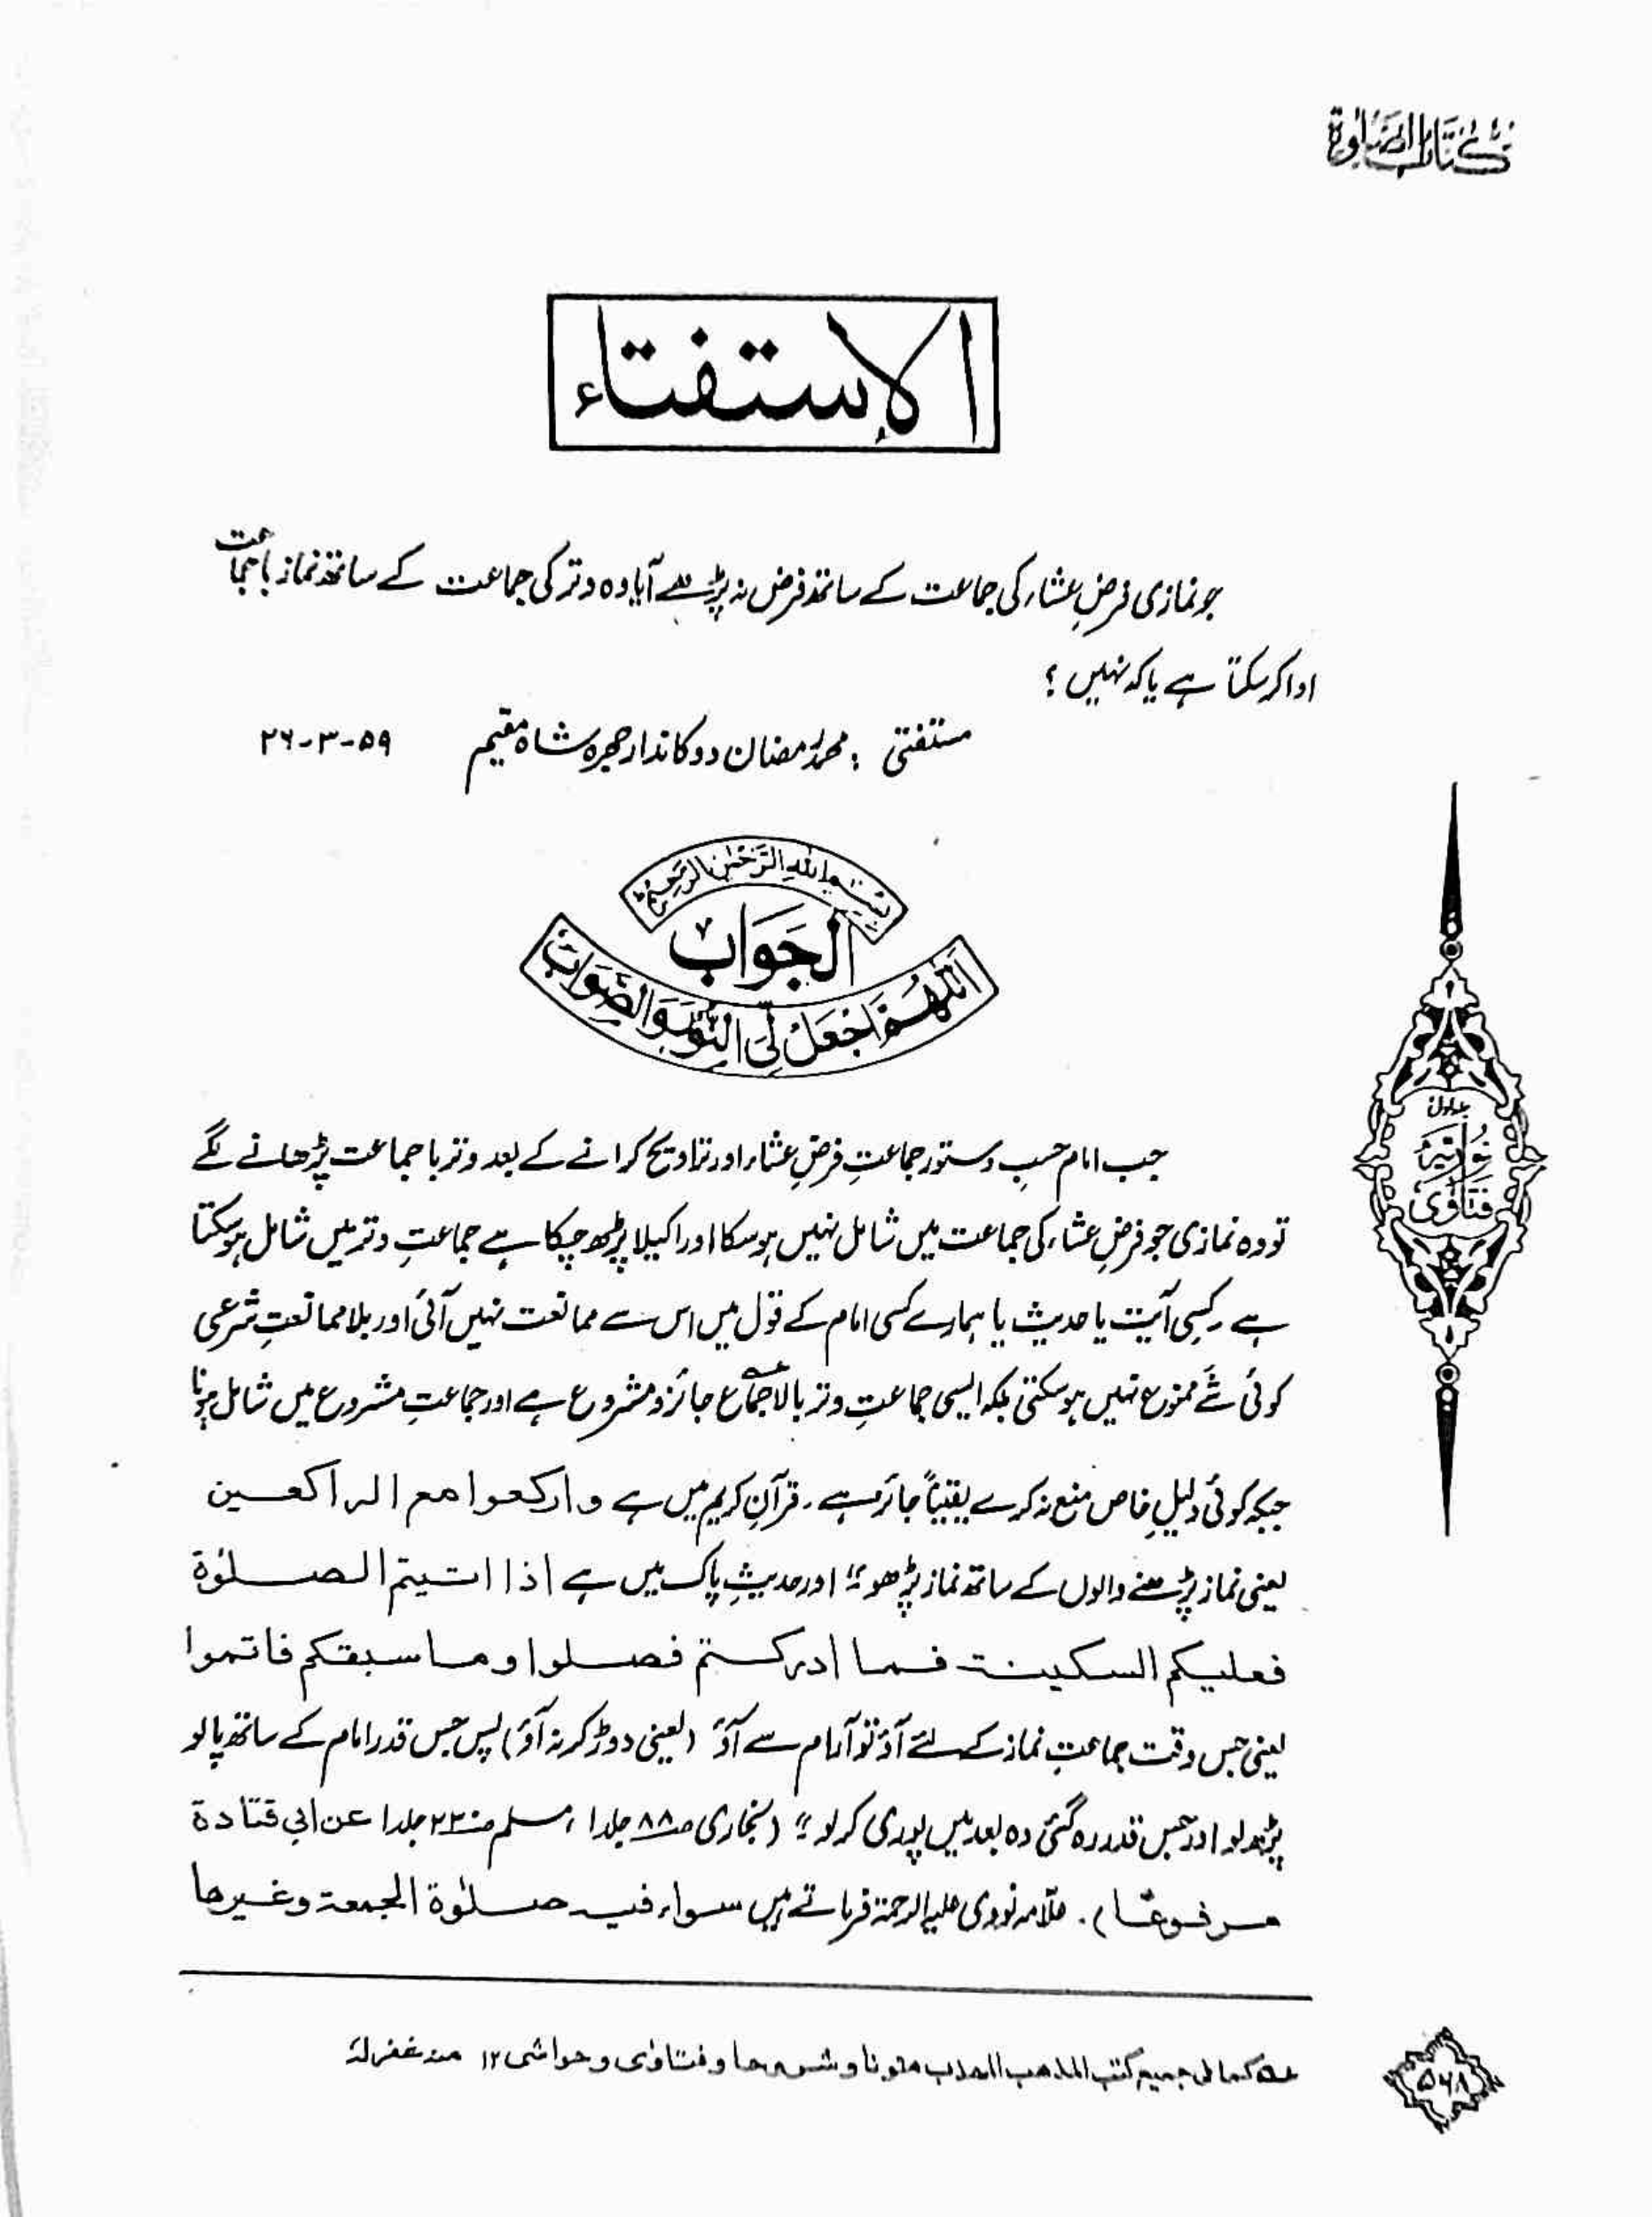 كتاب الصلوة
الإستفتاء
جو نمازی فرضِ عشاء کی جماعت کے ساتھ فرض نہ پڑھے آیا وہ وتر کی جماعت کے ساتھ نماز باجماعت
ادا کر سکتا ہے یا کہ نہیں ؟
مستفتی : محمد رمضان دوکاندار حجرہ شاہ مقیم ۵۹-۳-۲۶
بسم الله الرحمن الرحيم
الجواب
اللهم اجعل لی النور والصواب
جب امام حسبِ دستور جماعتِ فرضِ عشاء اور تراویح کرانے کے بعد وتر با جماعت پڑھانے لگے
تو وہ نمازی جو فرضِ عشاء کی جماعت میں شامل نہیں ہو سکا اور اکیلا پڑھ چکا ہے جماعتِ وتر میں شامل ہو سکتا
ہے ۔ کسی آیت یا حدیث یا ہمارے کسی امام کے قول میں اس سے ممانعت نہیں آئی اور بلا ممانعتِ شرعی
کوئی شَے ممنوع نہیں ہو سکتی بلکہ ایسی جماعتِ وتر بالاجماع عـه جائز و مشروع ہے اور جماعتِ مشروع میں شامل ہونا
جبکہ کوئی دلیلِ خاص منع نہ کرے یقیناً جائز ہے ۔ قرآنِ کریم میں ہے وارکعوا مع الراکعین
یعنی نماز پڑھنے والوں کے ساتھ نماز پڑھو ؛" اور حدیثِ پاک میں ہے اذا اتیتم الصلوٰة
فعلیکم السکینة فما ادرکتم فصلوا وما سبقکم فاتموا
یعنی جس وقت جماعتِ نماز کے لئے آؤ تو آرام سے آؤ (یعنی دوڑ کر نہ آؤ) پس جس قدر امام کے ساتھ پا لو
پڑھ لو اور جس قدر رہ گئی وہ بعد میں پوری کر لو ؛" (بخاری صـ۸۸ جلد۱ ، مسلم صـ۲۲۰ جلد۱ عن ابی قتادة
مرفوعًا) ۔ علّامہ نووی علیہ الرحمۃ فرماتے ہیں سواء فیه صلوٰة الجمعة وغیرها
عـه کما فی جمیع کتب المذهب المهذب متونا و شروحا و فتاوٰی و حواشی ۱۲ منه غفرلهٗ
جلد اول
فتاوٰی نوریہ
۵۶۸